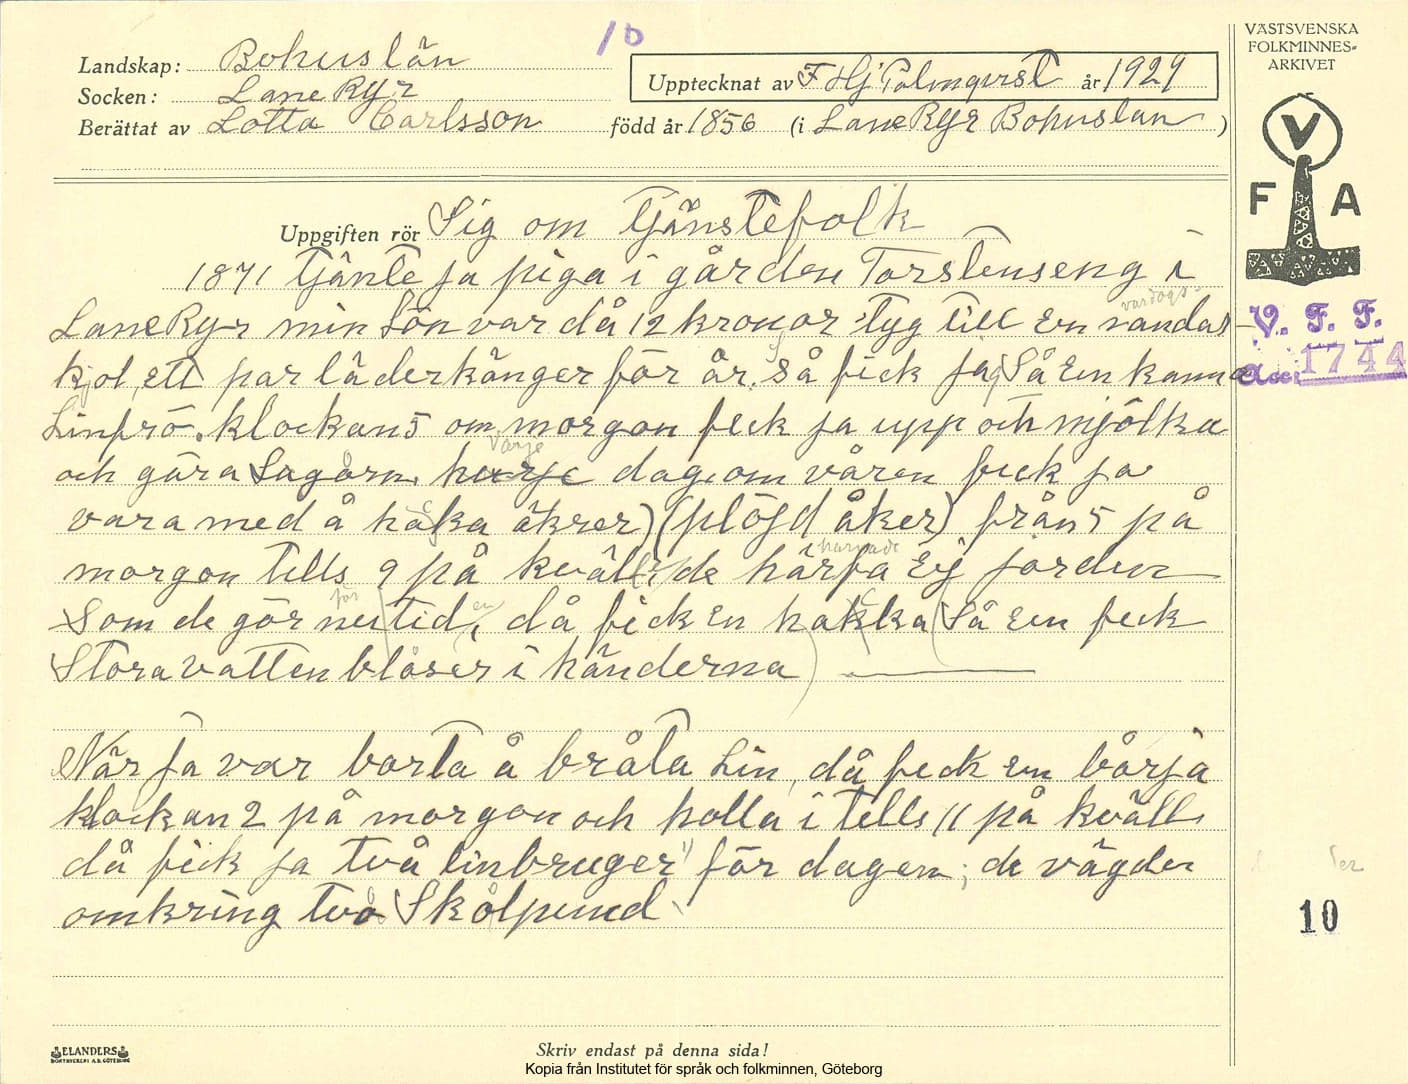 10
VÄSTSVENSKA
FOLKMINNES-
ARKIVET
Landskap: Bohuslän
Socken: Lane Ryr
Upptecknat av F Hj Palmqvist år 1929
Berättat av Lotta Carlsson född år 1856 (i Lane Ryr Bohuslän)
V
F A
Uppgiften rör Sig om tjänstefolk
1871 tjänte ja piga i gården Torstenseng i
vardags-
Lane Ryr min Lön var då 12 kronor tyg till en vanda
V. F. F.
kjol, ett par läderkänger för år. Så fick jag Så En kanna
Acc: 1744
Linfrö. klockan 5 om morgon feck ja upp och mjölka
varje
och göra Lagårn. hurje dag, om våren feck ja
vara med å hacka åkrer) (plöjd åker) från 5 på
harvade
morgon tells 9 på kväll, de härfa Ej jorden
för en
Som de gör nu tid, då fick En hakka Så Een feck
Stora vatten blåser i händerna
När Ja var borta å bråta Lin, då feck en börja
klockan 2 på morgon och holla i tells 11 på kväll
då fick ja två linbruger" för dagen; de vägde
omkring två Skålpund
10
ELANDERS
BOKTRYCKERI A.B. GÖTEBORG
Skriv endast på denna sida!
Kopia från Institutet för språk och folkminnen, Göteborg